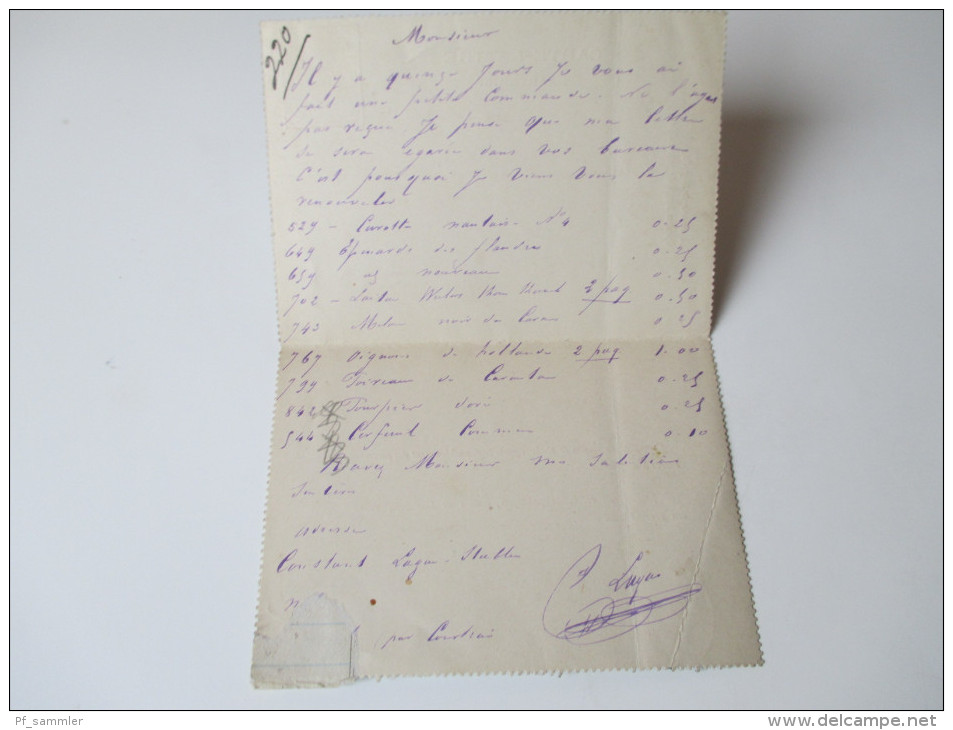 220
Monsieur
Il y a quinze jours je vous ai
fait une petite commande. Ne l'ayas
pas reçue Je pense que ma lettre
se sera egarée dans vos bureaux
C'est pourquoi je viens vous la
renouveler
529 - Carotte nantaise N° 4 0.25
649 Epinards des flandre 0.25
659 id nouveau 0.50
702 - 2 paq 0.50
743 Melon noir des Carmes 0.25
767 Oignons de hollande 2 paq 1.00
799 Poireau de Carentan 0.25
842 Pourpier doré 0.25
544 Cerfeuil Commun 0.10
Monsieur
adresse
Constant Lagae-
C Lagae
par Courtrai
Pf_sammler
www.delcampe.net